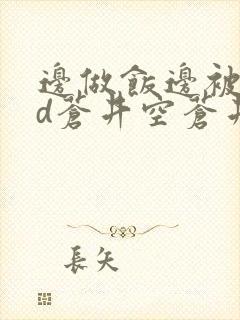 邊做飯邊被
d蒼井空蒼井
長矢